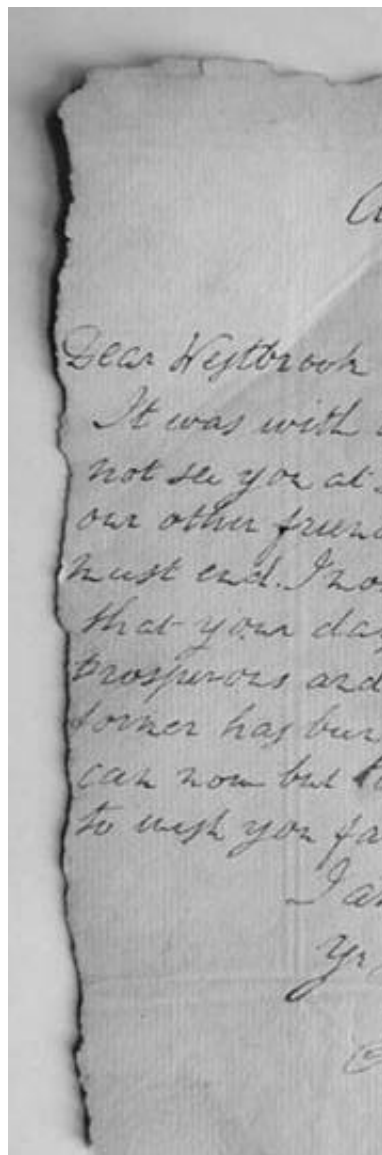 Dear Westbrook
It was with
not see you at
our other frien
must end. I no
that your day
prosperous and
former has bur
can now but to
to wish you fa
I am
Yr